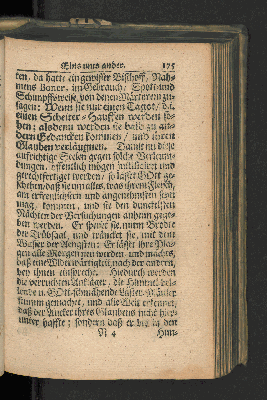 Eins ums ander. 175
ten, da hatte ein gewisser Bischoff, Nah-
mens Boner, im Gebrauch, Spott und
Schimpffsweise, von denen Märtyrern zu
sagen: Wenn sie nur einen Tag
einen Scheiter-Hauffen werden se-
hen: alsdenn werden sie bald zu an-
dern Gedancken kommen, und ihren
Glauben verläugnen. Damit nu diese
auffrichtige Seelen gegen solche Verleum-
dungen, öffentlich mögen justificiret und
gerechtfertiget werden, so lässet Gott ge-
schehen, daß sie um alles, was ihrem Fleisch,
am erfreulichsten und angenehmsten seyn
mag, kommen, und sie den dunckelsten
Nächten der Versuchungen anheim gege-
ben werden. Er speiset sie mit Brodte
der Trübsaal, und träncket sie, mit dem
Wasser der Aengsten: Er lässet ihre Pla-
gen alle Morgen neu werden, und machts,
daß eine Widerwärtigkeit, nach der andern,
bey ihnen einspreche. Hiedurch werden
die verruchten Ankläger, die Himmel
und Gott-schmähende Läster-Mäuler
stumm gemachet, und alle Welt erkennet,
daß der Ancker ihres Glaubens nicht hier-
unter haffte; sondern daß er biß in den
N 4 Him-